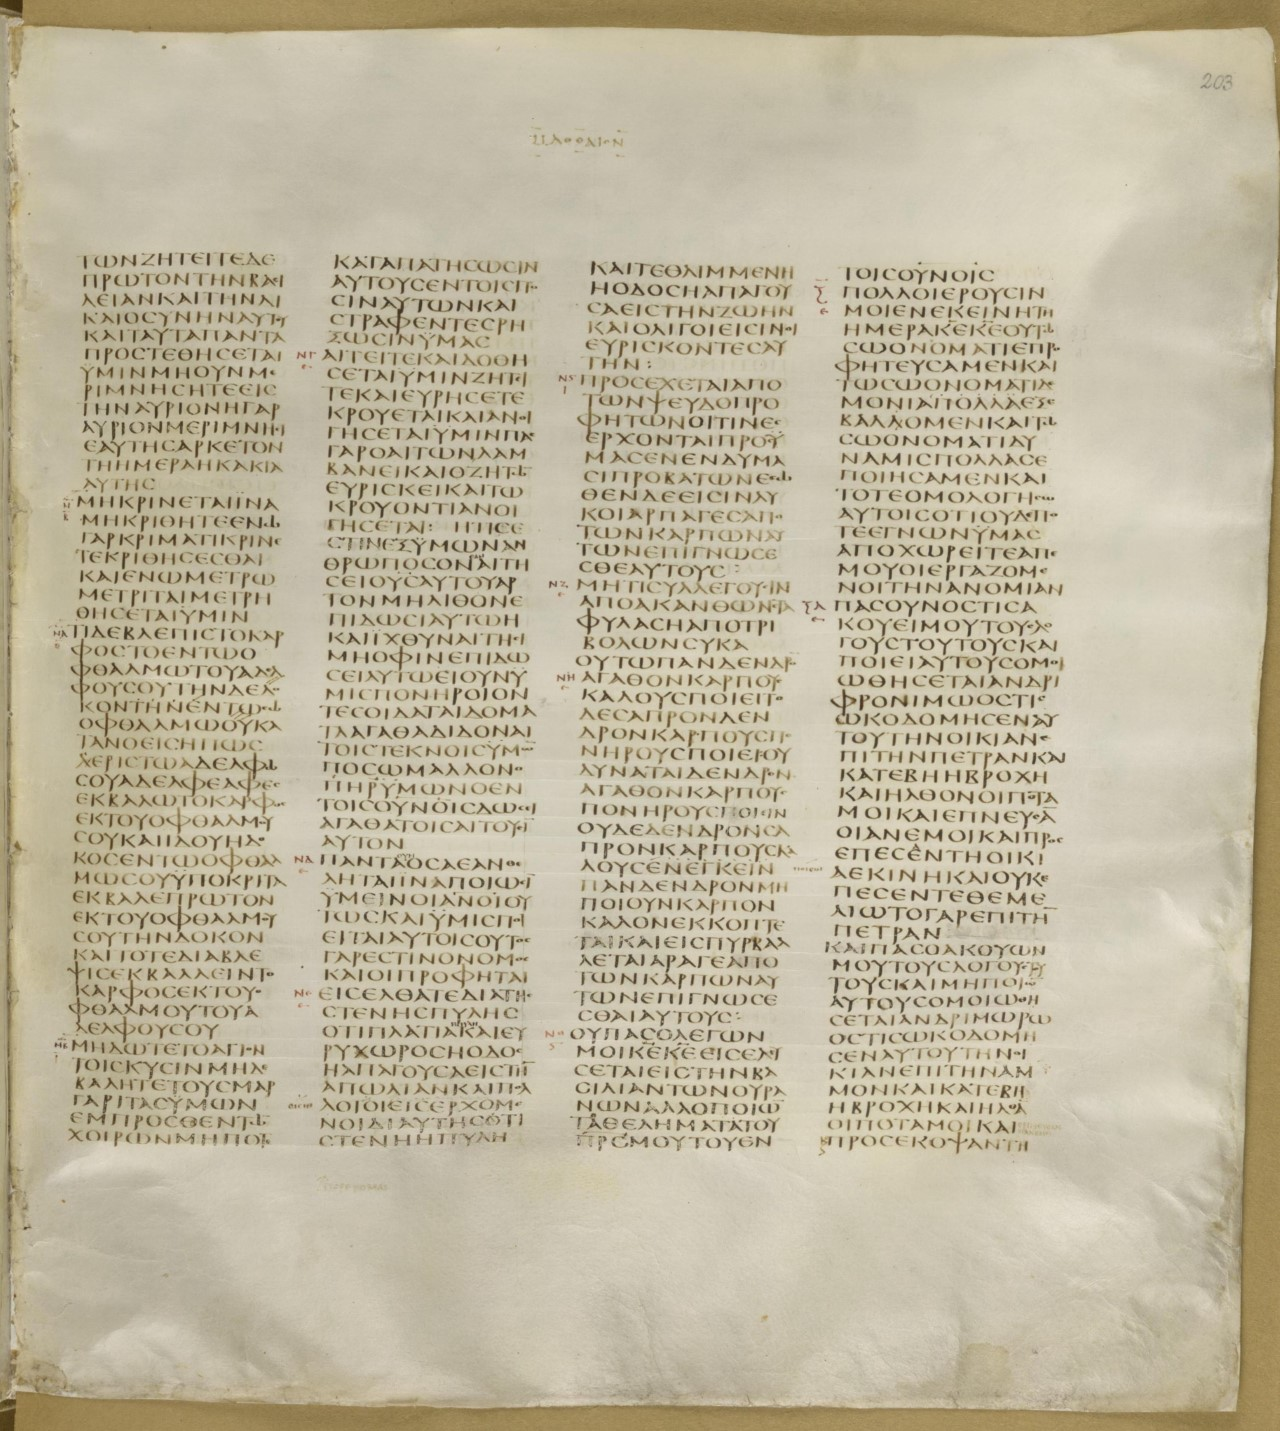 203
ΜΑΘΘΑΙΟΝ
ΤΩΝΖΗΤΕΙΤΕΔΕ
ΠΡΩΤΟΝΤΗΝΒΑϹΙ
ΛΕΙΑΝΚΑΙΤΗΝΔΙ
ΚΑΙΟϹΥΝΗΝΑΥΤΟΥ
ΚΑΙΤΑΥΤΑΠΑΝΤΑ
ΠΡΟϹΤΕΘΗϹΕΤΑΙ
ΥΜΙΝΜΗΟΥΝΜΕ
ΡΙΜΝΗϹΗΤΕΕΙϹ
ΤΗΝΑΥΡΙΟΝΗΓΑΡ
ΑΥΡΙΟΝΜΕΡΙΜΝΗϹΙ
ΕΑΥΤΗϹΑΡΚΕΤΟΝ
ΤΗΗΜΕΡΑΗΚΑΚΙΑ
ΑΥΤΗϹ
ΜΗΚΡΙΝΕΤΑΙΪΝΑ
ΜΗΚΡΙΘΗΤΕΕΝΩ
ΓΑΡΚΡΙΜΑΤΙΚΡΙΝΕ
ΤΕΚΡΙΘΗϹΕϹΘΑΙ
ΚΑΙΕΝΩΜΕΤΡΩ
ΜΕΤΡΙΤΑΙΜΕΤΡΗ
ΘΗϹΕΤΑΙΫΜΙΝ
ΤΙΔΕΒΛΕΠΙϹΤΟΚΑΡ
ΦΟϹΤΟΕΝΤΩΟ
ΦΘΑΛΜΩΤΟΥΑΔΕΛ
ΦΟΥϹΟΥΤΗΝΔΕΔΟ
ΚΟΝΤΗΝΕΝΤΩϹΩ
ΟΦΘΑΛΜΩΟΥΚΑ
ΤΑΝΟΕΙϹΗΠΩϹ
ΛΕΓΙϹΤΩΑΔΕΛΦΩ
ϹΟΥΑΔΕΛΦΕΑΦΕϹ
ΕΚΒΑΛΩΤΟΚΑΡΦΟϹ
ΕΚΤΟΥΟΦΘΑΛΜΟΥ
ϹΟΥΚΑΙΪΔΟΥΗΔΟ
ΚΟϹΕΝΤΩΟΦΘΑΛ
ΜΩϹΟΥΫΠΟΚΡΙΤΑ
ΕΚΒΑΛΕΠΡΩΤΟΝ
ΕΚΤΟΥΟΦΘΑΛΜΟΥ
ϹΟΥΤΗΝΔΟΚΟΝ
ΚΑΙΤΟΤΕΔΙΑΒΛΕ
ΨΙϹΕΚΒΑΛΛΕΙΝΤΟ
ΚΑΡΦΟϹΕΚΤΟΥΟ
ΦΘΑΛΜΟΥΤΟΥΑ
ΔΕΛΦΟΥϹΟΥ
ΜΗΔΩΤΕΤΟΑΓΙΟΝ
ΤΟΙϹΚΥϹΙΝΜΗΔΕ
ΒΑΛΗΤΕΤΟΥϹΜΑΡ
ΓΑΡΙΤΑϹΫΜΩΝ
ΕΜΠΡΟϹΘΕΝΤΩ
ΧΟΙΡΩΝΜΗΠΟΤΕ
ΚΑΤΑΠΑΤΗϹΩϹΙΝ
ΑΥΤΟΥϹΕΝΤΟΙϹΠΟ
ϹΙΝΑΥΤΩΝΚΑΙ
ϹΤΡΑΦΕΝΤΕϹΡΗ
ΞΩϹΙΝΫΜΑϹ
ΑΙΤΕΙΤΕΚΑΙΔΟΘΗ
ϹΕΤΑΙΫΜΙΝΖΗΤΕΙ
ΤΕΚΑΙΕΥΡΗϹΕΤΕ
ΚΡΟΥΕΤΑΙΚΑΙΑΝΟΙ
ΓΗϹΕΤΑΙΫΜΙΝΠΑϹ
ΓΑΡΟΑΙΤΩΝΛΑΜ
ΒΑΝΕΙΚΑΙΟΖΗΤΩ
ΕΥΡΙϹΚΕΙΚΑΙΤΩ
ΚΡΟΥΟΝΤΙΑΝΟΙ
ΓΗϹΕΤΑΙ: ΗΤΙϹΕ
ϹΤΙΝΕΞΫΜΩΝΑΝ
ΘΡΩΠΟϹΟΝΑΙΤΗ
ϹΕΙΟΥϹΑΥΤΟΥΑΡ
ΤΟΝΜΗΛΙΘΟΝΕ
ΠΙΔΩϹΙΑΥΤΩΗ
ΚΑΙΪΧΘΥΝΑΙΤΗϹΙ
ΜΗΟΦΙΝΕΠΙΔΩ
ϹΕΙΑΥΤΩΕΙΟΥΝΥ
ΜΙϹΠΟΝΗΡΟΙΟΝ
ΤΕϹΟΙΔΑΤΑΙΔΟΜΑ
ΤΑΑΓΑΘΑΔΙΔΟΝΑΙ
ΤΟΙϹΤΕΚΝΟΙϹΫΜΩΝ
ΠΟϹΩΜΑΛΛΟΝΟ
ΠΗΡΫΜΩΝΟΕΝ
ΤΟΙϹΟΥΝΟΙϹΔΩϹΕΙ
ΑΓΑΘΑΤΟΙϹΑΙΤΟΥϹΙ
ΑΥΤΟΝ
ΠΑΝΤΑΟϹΑΕΑΝΘΕ
ΛΗΤΑΙΪΝΑΠΟΙΩϹΙ
ΫΜΕΙΝΟΙΑΝΟΙΟΥ
ΤΩϹΚΑΙΫΜΙϹΠΟΙ
ΕΙΤΑΙΑΥΤΟΙϹΟΥΤΟϹ
ΓΑΡΕϹΤΙΝΟΝΟΜΟϹ
ΚΑΙΟΙΠΡΟΦΗΤΑΙ
ΕΙϹΕΛΘΑΤΕΔΙΑΤΗϹ
ϹΤΕΝΗϹΠΥΛΗϹ
ΟΤΙΠΛΑΤΙΑΚΑΙΕΥ
ΡΥΧΩΡΟϹΗΟΔΟϹ
ΗΑΠΑΓΟΥϹΑΕΙϹΤΗ
ΑΠΩΛΙΑΝΚΑΙΠΟΛ
ΛΟΙΟΙΕΙϹΕΡΧΟΜΕ
ΝΟΙΔΙΑΥΤΗϹΟΤΙ
ϹΤΕΝΗΗΠΥΛΗ
ΚΑΙΤΕΘΛΙΜΜΕΝΗ
ΗΟΔΟϹΗΑΠΑΓΟΥ
ϹΑΕΙϹΤΗΝΖΩΗΝ
ΚΑΙΟΛΙΓΟΙΕΙϹΙΝΟΙ
ΕΥΡΙϹΚΟΝΤΕϹΑΥ
ΤΗΝ:
ΠΡΟϹΕΧΕΤΑΙΑΠΟ
ΤΩΝΨΕΥΔΟΠΡΟ
ΦΗΤΩΝΟΙΤΙΝΕϹ
ΕΡΧΟΝΤΑΙΠΡΟϹΫ
ΜΑϹΕΝΕΝΔΥΜΑ
ϹΙΠΡΟΒΑΤΩΝΕϹΩ
ΘΕΝΔΕΕΙϹΙΝΛΥ
ΚΟΙΑΡΠΑΓΕϹΑΠΟ
ΤΩΝΚΑΡΠΩΝΑΥ
ΤΩΝΕΠΙΓΝΩϹΕ
ϹΘΕΑΥΤΟΥϹ:
ΜΗΤΙϹΥΛΛΕΓΟΥϹΙΝ
ΑΠΟΑΚΑΝΘΩΝϹΤΑ
ΦΥΛΑϹΗΑΠΟΤΡΙ
ΒΟΛΩΝϹΥΚΑ
ΟΥΤΩΠΑΝΔΕΝΔΡΟ
ΑΓΑΘΟΝΚΑΡΠΟΥϹ
ΚΑΛΟΥϹΠΟΙΕΙΤΟ
ΔΕϹΑΠΡΟΝΔΕΝ
ΔΡΟΝΚΑΡΠΟΥϹΠΟ
ΝΗΡΟΥϹΠΟΙΕΙΟΥ
ΔΥΝΑΤΑΙΔΕΝΔΡΟΝ
ΑΓΑΘΟΝΚΑΡΠΟΥϹ
ΠΟΝΗΡΟΥϹΠΟΙΕΙΝ
ΟΥΔΕΔΕΝΔΡΟΝϹΑ
ΠΡΟΝΚΑΡΠΟΥϹΚΑ
ΛΟΥϹΕΝΕΓΚΕΙΝ
ΠΑΝΔΕΝΔΡΟΝΜΗ
ΠΟΙΟΥΝΚΑΡΠΟΝ
ΚΑΛΟΝΕΚΚΟΠΤΕ
ΤΑΙΚΑΙΕΙϹΠΥΡΒΑΛ
ΛΕΤΑΙΑΡΑΓΕΑΠΟ
ΤΩΝΚΑΡΠΩΝΑΥ
ΤΩΝΕΠΙΓΝΩϹΕ
ϹΘΑΙΑΥΤΟΥϹ:
ΟΥΠΑϹΟΛΕΓΩΝ
ΜΟΙΚΕΚΕΕΙϹΕΛΕΥ
ϹΕΤΑΙΕΙϹΤΗΝΒΑ
ϹΙΛΙΑΝΤΩΝΟΥΡΑ
ΝΩΝΑΛΛΟΠΟΙΩ
ΤΑΘΕΛΗΜΑΤΑΤΟΥ
ΠΡϹΜΟΥΤΟΥΕΝ
ΤΟΙϹΟΥΝΟΙϹ
ΠΟΛΛΟΙΕΡΟΥϹΙΝ
ΜΟΙΕΝΕΚΕΙΝΗΤΗ
ΗΜΕΡΑΚΕΚΕΟΥΤΩ
ϹΩΟΝΟΜΑΤΙΕΠΡΟ
ΦΗΤΕΥϹΑΜΕΝΚΑΙ
ΤΩϹΩΟΝΟΜΑΤΙΔΕ
ΜΟΝΙΑΠΟΛΛΑΕΞΕ
ΒΑΛΛΟΜΕΝΚΑΙΤΩ
ϹΩΟΝΟΜΑΤΙΔΥ
ΝΑΜΙϹΠΟΛΛΑϹΕ
ΠΟΙΗϹΑΜΕΝΚΑΙ
ΤΟΤΕΟΜΟΛΟΓΗϹΩ
ΑΥΤΟΙϹΟΤΙΟΥΔΕΠΟ
ΤΕΕΓΝΩΝΫΜΑϹ
ΑΠΟΧΩΡΕΙΤΕΑΠΕ
ΜΟΥΟΙΕΡΓΑΖΟΜΕ
ΝΟΙΤΗΝΑΝΟΜΙΑΝ
ΠΑϹΟΥΝΟϹΤΙϹΑ
ΚΟΥΕΙΜΟΥΤΟΥϹΛΟ
ΓΟΥϹΤΟΥΤΟΥϹΚΑΙ
ΠΟΙΕΙΑΥΤΟΥϹΟΜΟΙ
ΩΘΗϹΕΤΑΙΑΝΔΡΙ
ΦΡΟΝΙΜΩΟϹΤΙϹ
ΩΚΟΔΟΜΗϹΕΝΑΥ
ΤΟΥΤΗΝΟΙΚΙΑΝΕ
ΠΙΤΗΝΠΕΤΡΑΝΚΑΙ
ΚΑΤΕΒΗΗΒΡΟΧΗ
ΚΑΙΗΛΘΟΝΟΙΠΟΤΑ
ΜΟΙΚΑΙΕΠΝΕΥϹΑ
ΟΙΑΝΕΜΟΙΚΑΙΠΡΟϹΕ
ΕΠΕϹΕΝΤΗΟΙΚΙ
ΑΕΚΙΝΗΚΑΙΟΥΚΕ
ΠΕϹΕΝΤΕΘΕΜΕ
ΛΙΩΤΟΓΑΡΕΠΙΤΗ
ΠΕΤΡΑΝ
ΚΑΙΠΑϹΟΑΚΟΥΩΝ
ΜΟΥΤΟΥϹΛΟΓΟΥϹΤΟΥ
ΤΟΥϹΚΑΙΜΗΠΟΙΩ
ΑΥΤΟΥϹΟΜΟΙΩΘΗ
ϹΕΤΑΙΑΝΔΡΙΜΩΡΩ
ΟϹΤΙϹΩΚΟΔΟΜΗ
ϹΕΝΑΥΤΟΥΤΗΝΟΙ
ΚΙΑΝΕΠΙΤΗΝΑΜ
ΜΟΝΚΑΙΚΑΤΕΒΗ
ΗΒΡΟΧΗΚΑΙΗΛΘΑ
ΟΙΠΟΤΑΜΟΙΚΑΙ
ΠΡΟϹΕΚΟΨΑΝΤΗ